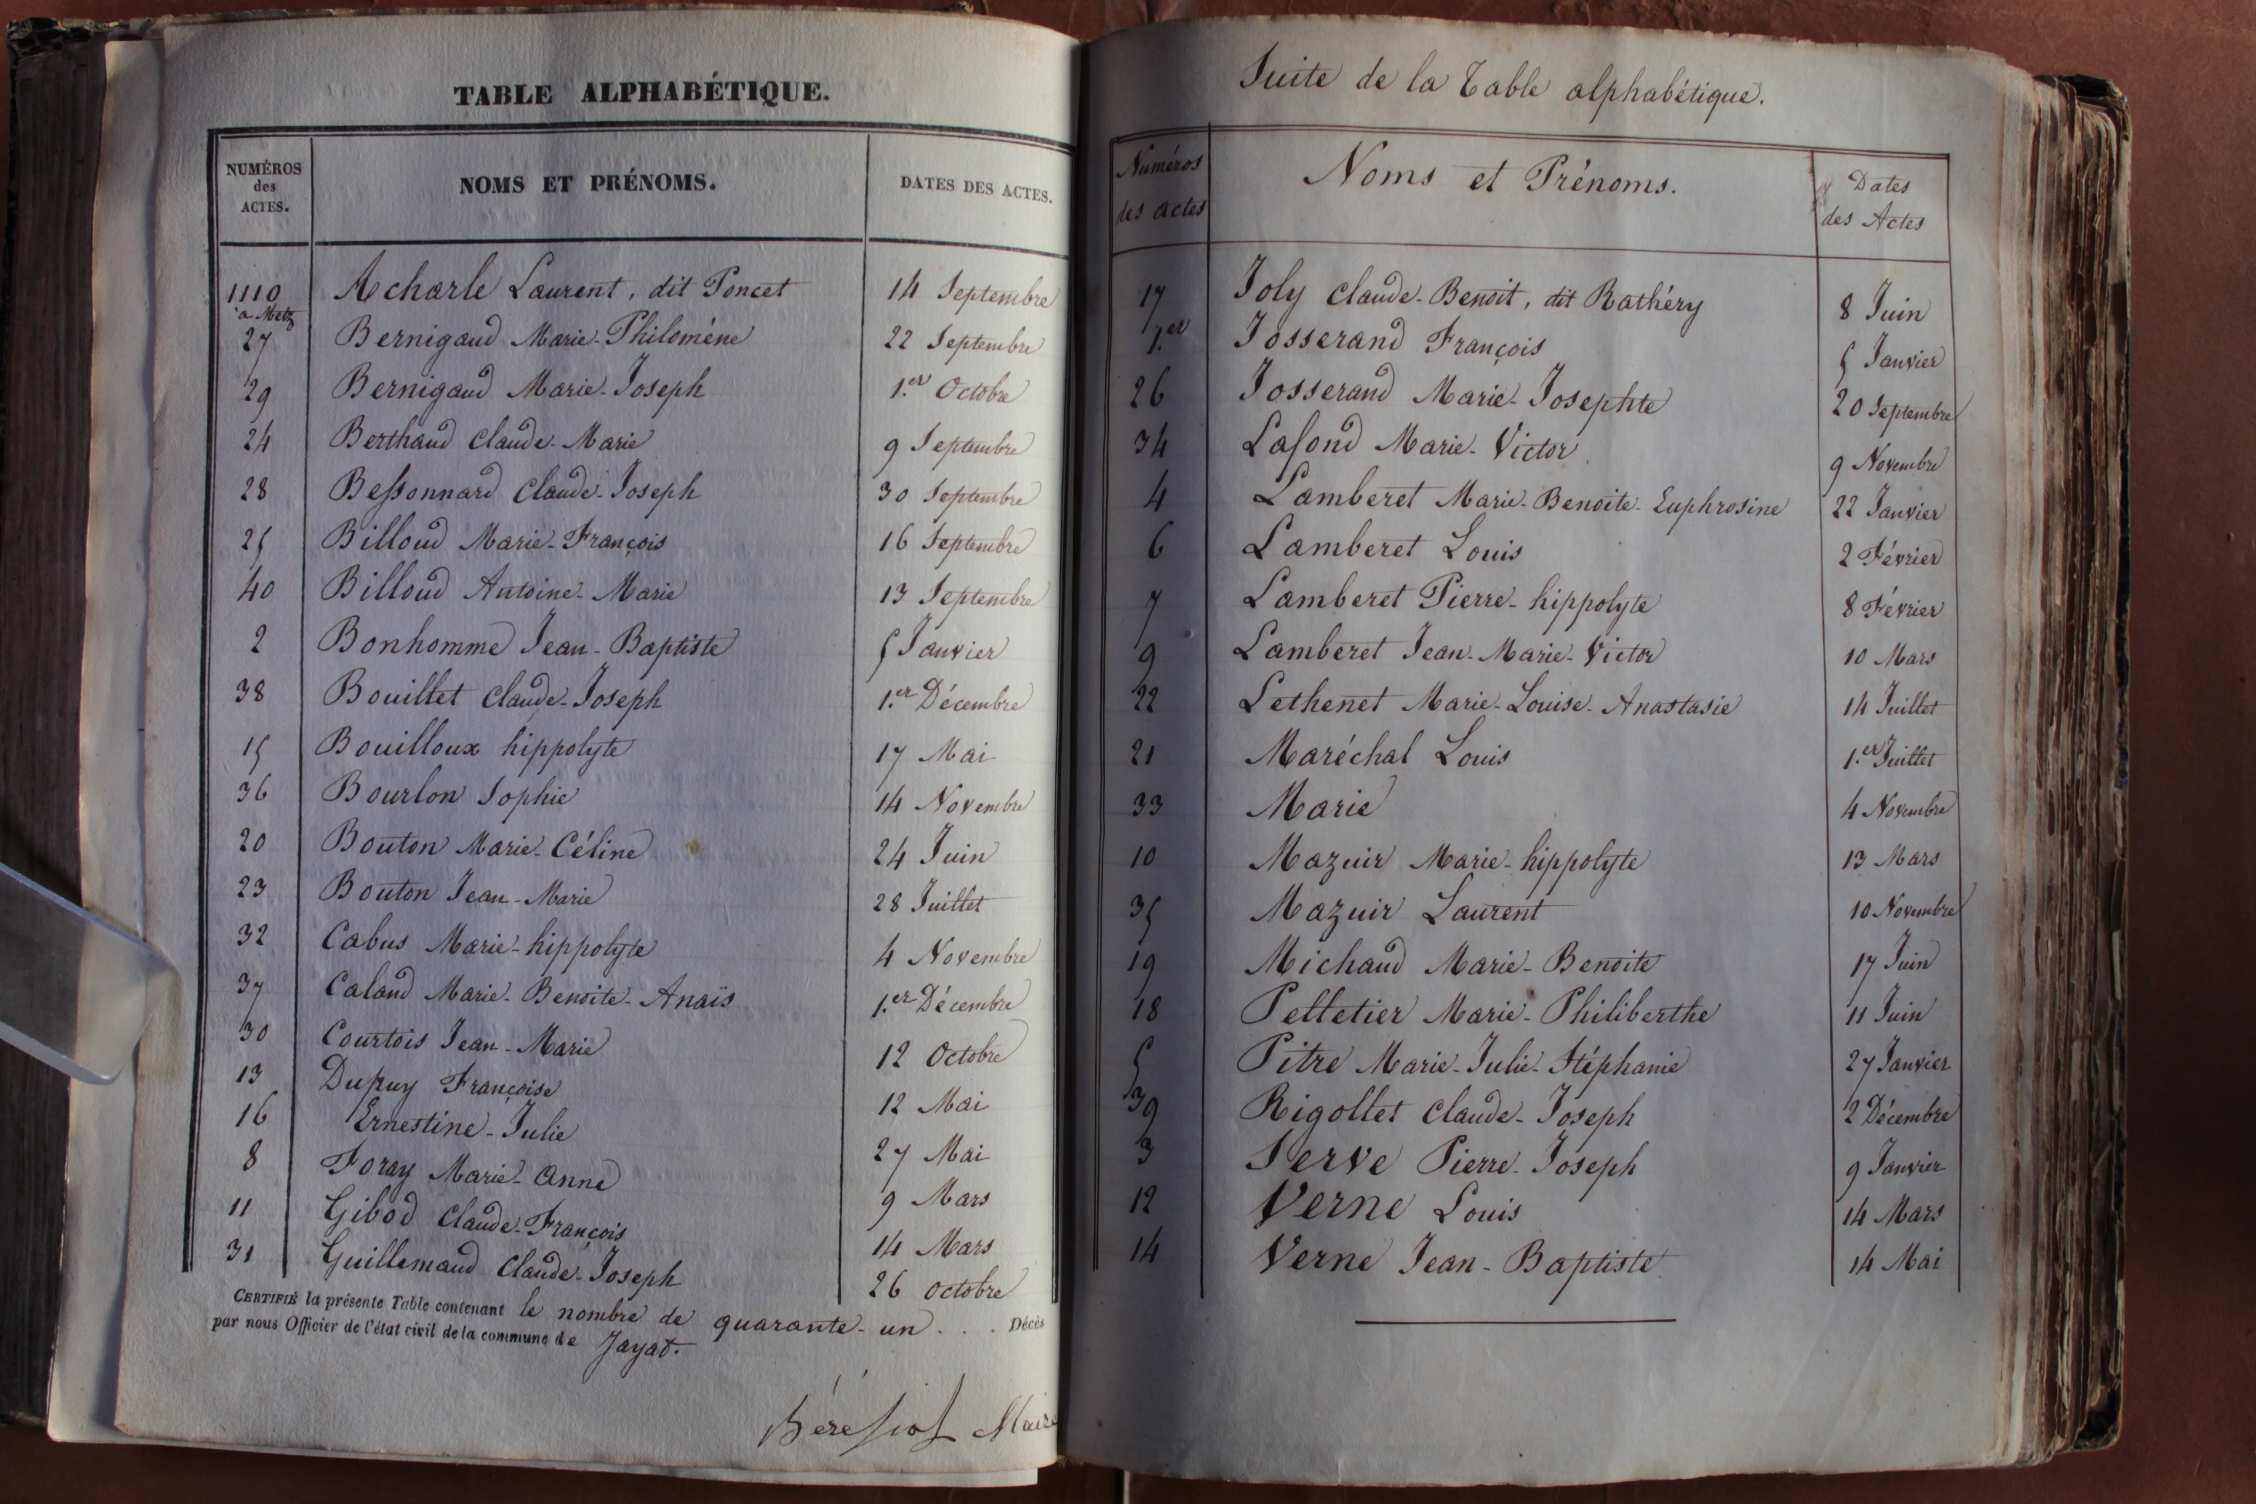 TABLE ALPHABÉTIQUE.
NUMÉROS des ACTES. NOMS ET PRÉNOMS. DATES DES ACTES.
1110 Acharle Laurent, dit Poncet 14 Septembre
a Metz
27 Bernigaud Marie-Philomène 22 Septembre
29 Bernigaud Marie-Joseph 1.er Octobre
24 Berthaud Claude-Marie 9 Septembre
28 Bessonnard Claude-Joseph 30 Septembre
25 Billoud Marie-François 16 Septembre
40 Billoud Antoine-Marie 13 Septembre
2 Bonhomme Jean-Baptiste 5 Janvier
38 Bouillet Claude-Joseph 1.er Décembre
15 Bouilloux hippolyte 17 Mai
36 Bourlon Sophie 14 Novembre
20 Bouton Marie-Céline 24 Juin
23 Bouton Jean-Marie 28 Juillet
32 Cabus Marie-hippolyte 4 Novembre
37 Caland Marie-Benoite-Anaïs 1.er Décembre
30 Courtois Jean-Marie 12 Octobre
13 Dupuy Françoise 12 Mai
16 Ernestine-Julie 27 Mai
8 Foray Marie-Anne 9 Mars
11 Gibod Claude-François 14 Mars
31 Guillemaud Claude-Joseph 26 Octobre
CERTIFIÉ la présente Table contenant le nombre de quarante-un . . . Décès
par nous Officier de l'état civil de la commune de Jayat.
Maire
Suite de la Table alphabétique.
Numéros des actes Noms et Prénoms. Dates des Actes
17 Joly Claude-Benoit, dit Rathéry 8 Juin
1.er Josserand François 5 Janvier
26 Josserand Marie-Josephte 20 Septembre
34 Lafond Marie-Victor 9 Novembre
4 Lamberet Marie-Benoite-Euphrosine 22 Janvier
6 Lamberet Louis 2 Février
7 Lamberet Pierre-hippolyte 8 Février
9 Lamberet Jean-Marie-Victor 10 Mars
22 Lethenet Marie-Louise-Anastasie 14 Juillet
21 Maréchal Louis 1.er Juillet
33 Marie 4 Novembre
10 Mazuir Marie-hippolyte 13 Mars
35 Mazuir Laurent 10 Novembre
19 Michaud Marie-Benoite 17 Juin
18 Pelletier Marie-Philiberthe 11 Juin
5 Pitre Marie-Julie-Stéphanie 27 Janvier
39 Rigollet Claude-Joseph 2 Décembre
3 Serve Pierre-Joseph 9 Janvier
12 Verne Louis 14 Mars
14 Verne Jean-Baptiste 14 Mai